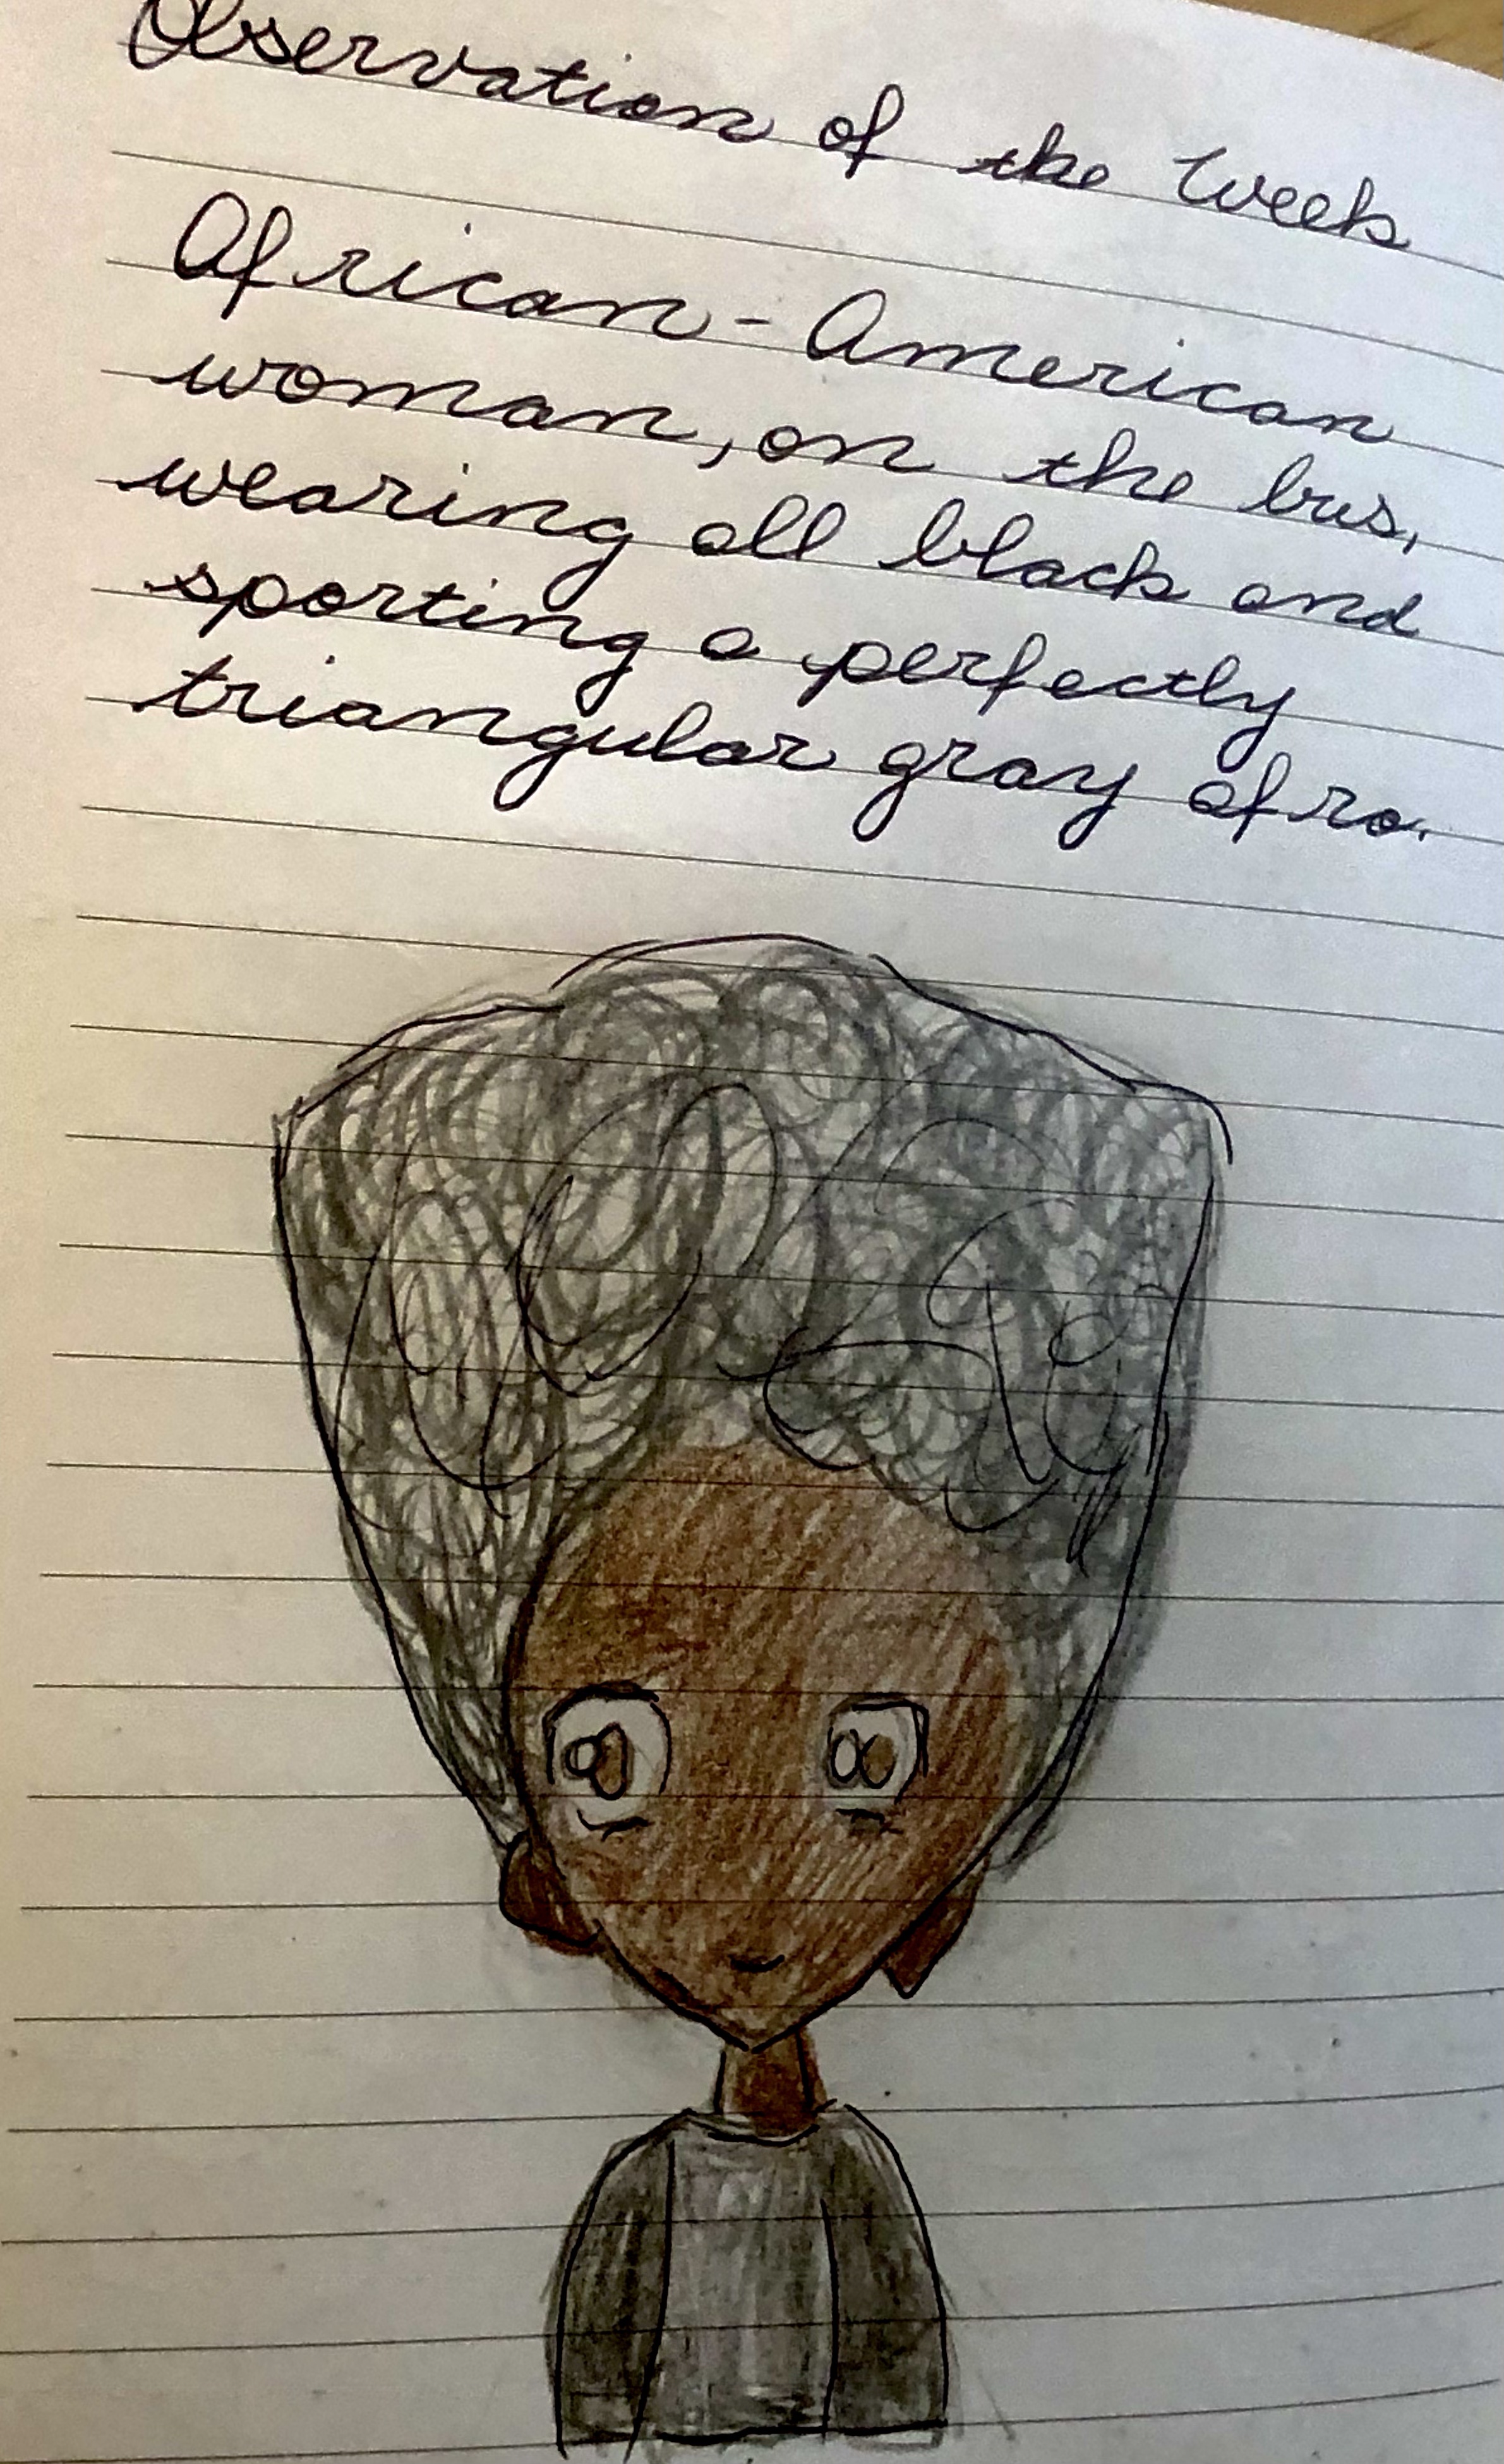 Observation of the Week
African-American
woman, on the bus,
wearing all black and
sporting a perfectly
triangular gray afro.